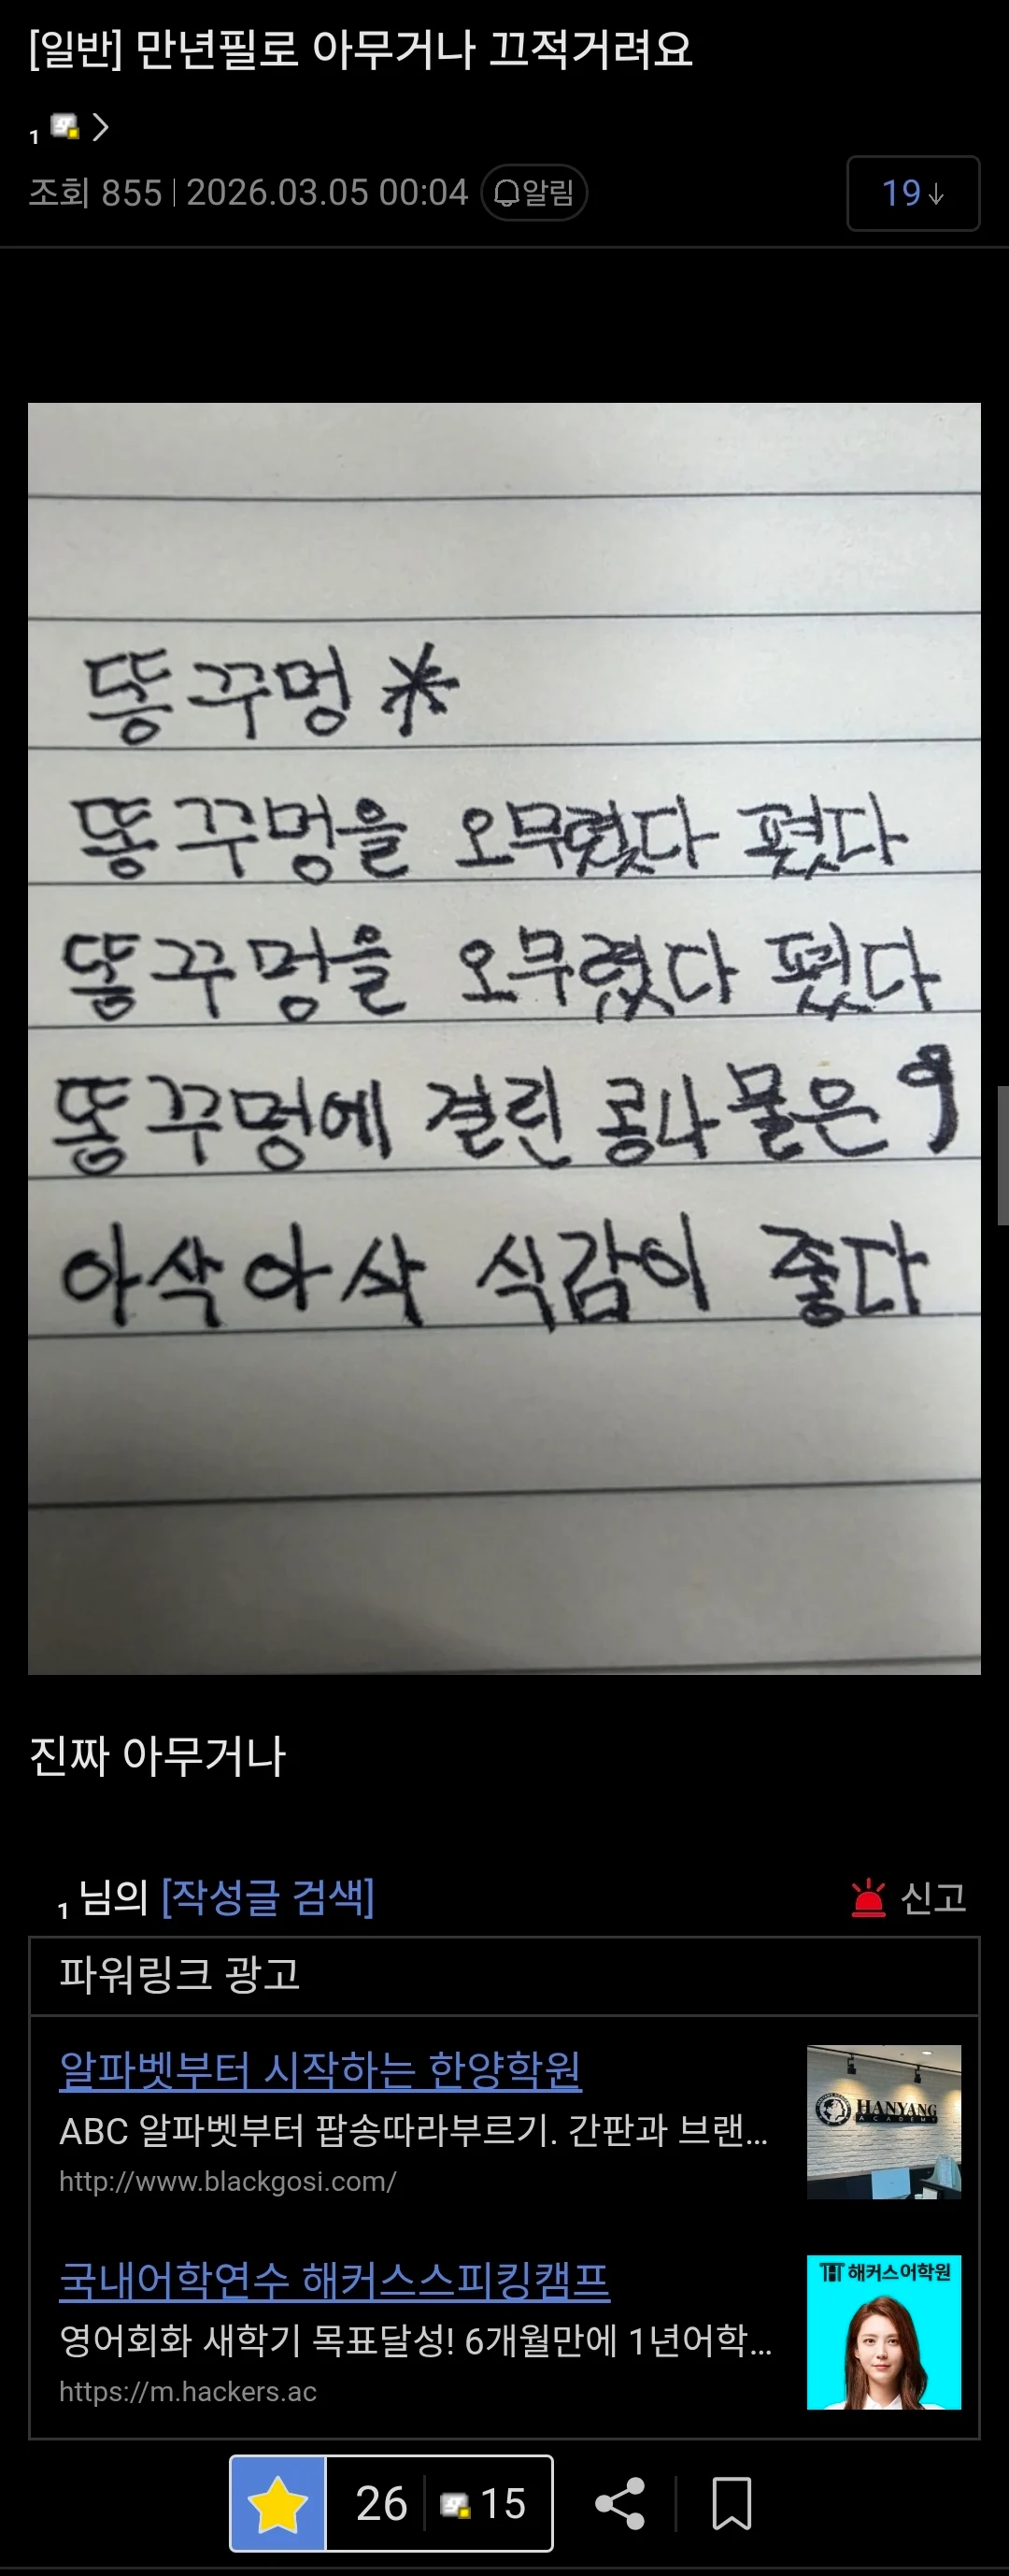 [일반] 만년필로 아무거나 끄적거려요
1
조회 855 | 2026.03.05 00:04 알림 19↓
똥꾸멍 *
똥꾸멍을 오무렸다 폈다
똥꾸멍을 오무렸다 폈다
똥꾸멍에 결린 콩나물은
아삭아삭 식감이 좋다
진짜 아무거나
1 님의 [작성글 검색] 신고
파워링크 광고
알파벳부터 시작하는 한양학원
ABC 알파벳부터 팝송따라부르기. 간판과 브랜...
http://www.blackgosi.com/
HANYANG
ACADEMY
국내어학연수 해커스스피킹캠프
영어회화 새학기 목표달성! 6개월만에 1년어학...
https://m.hackers.ac
해커스어학원
26 15